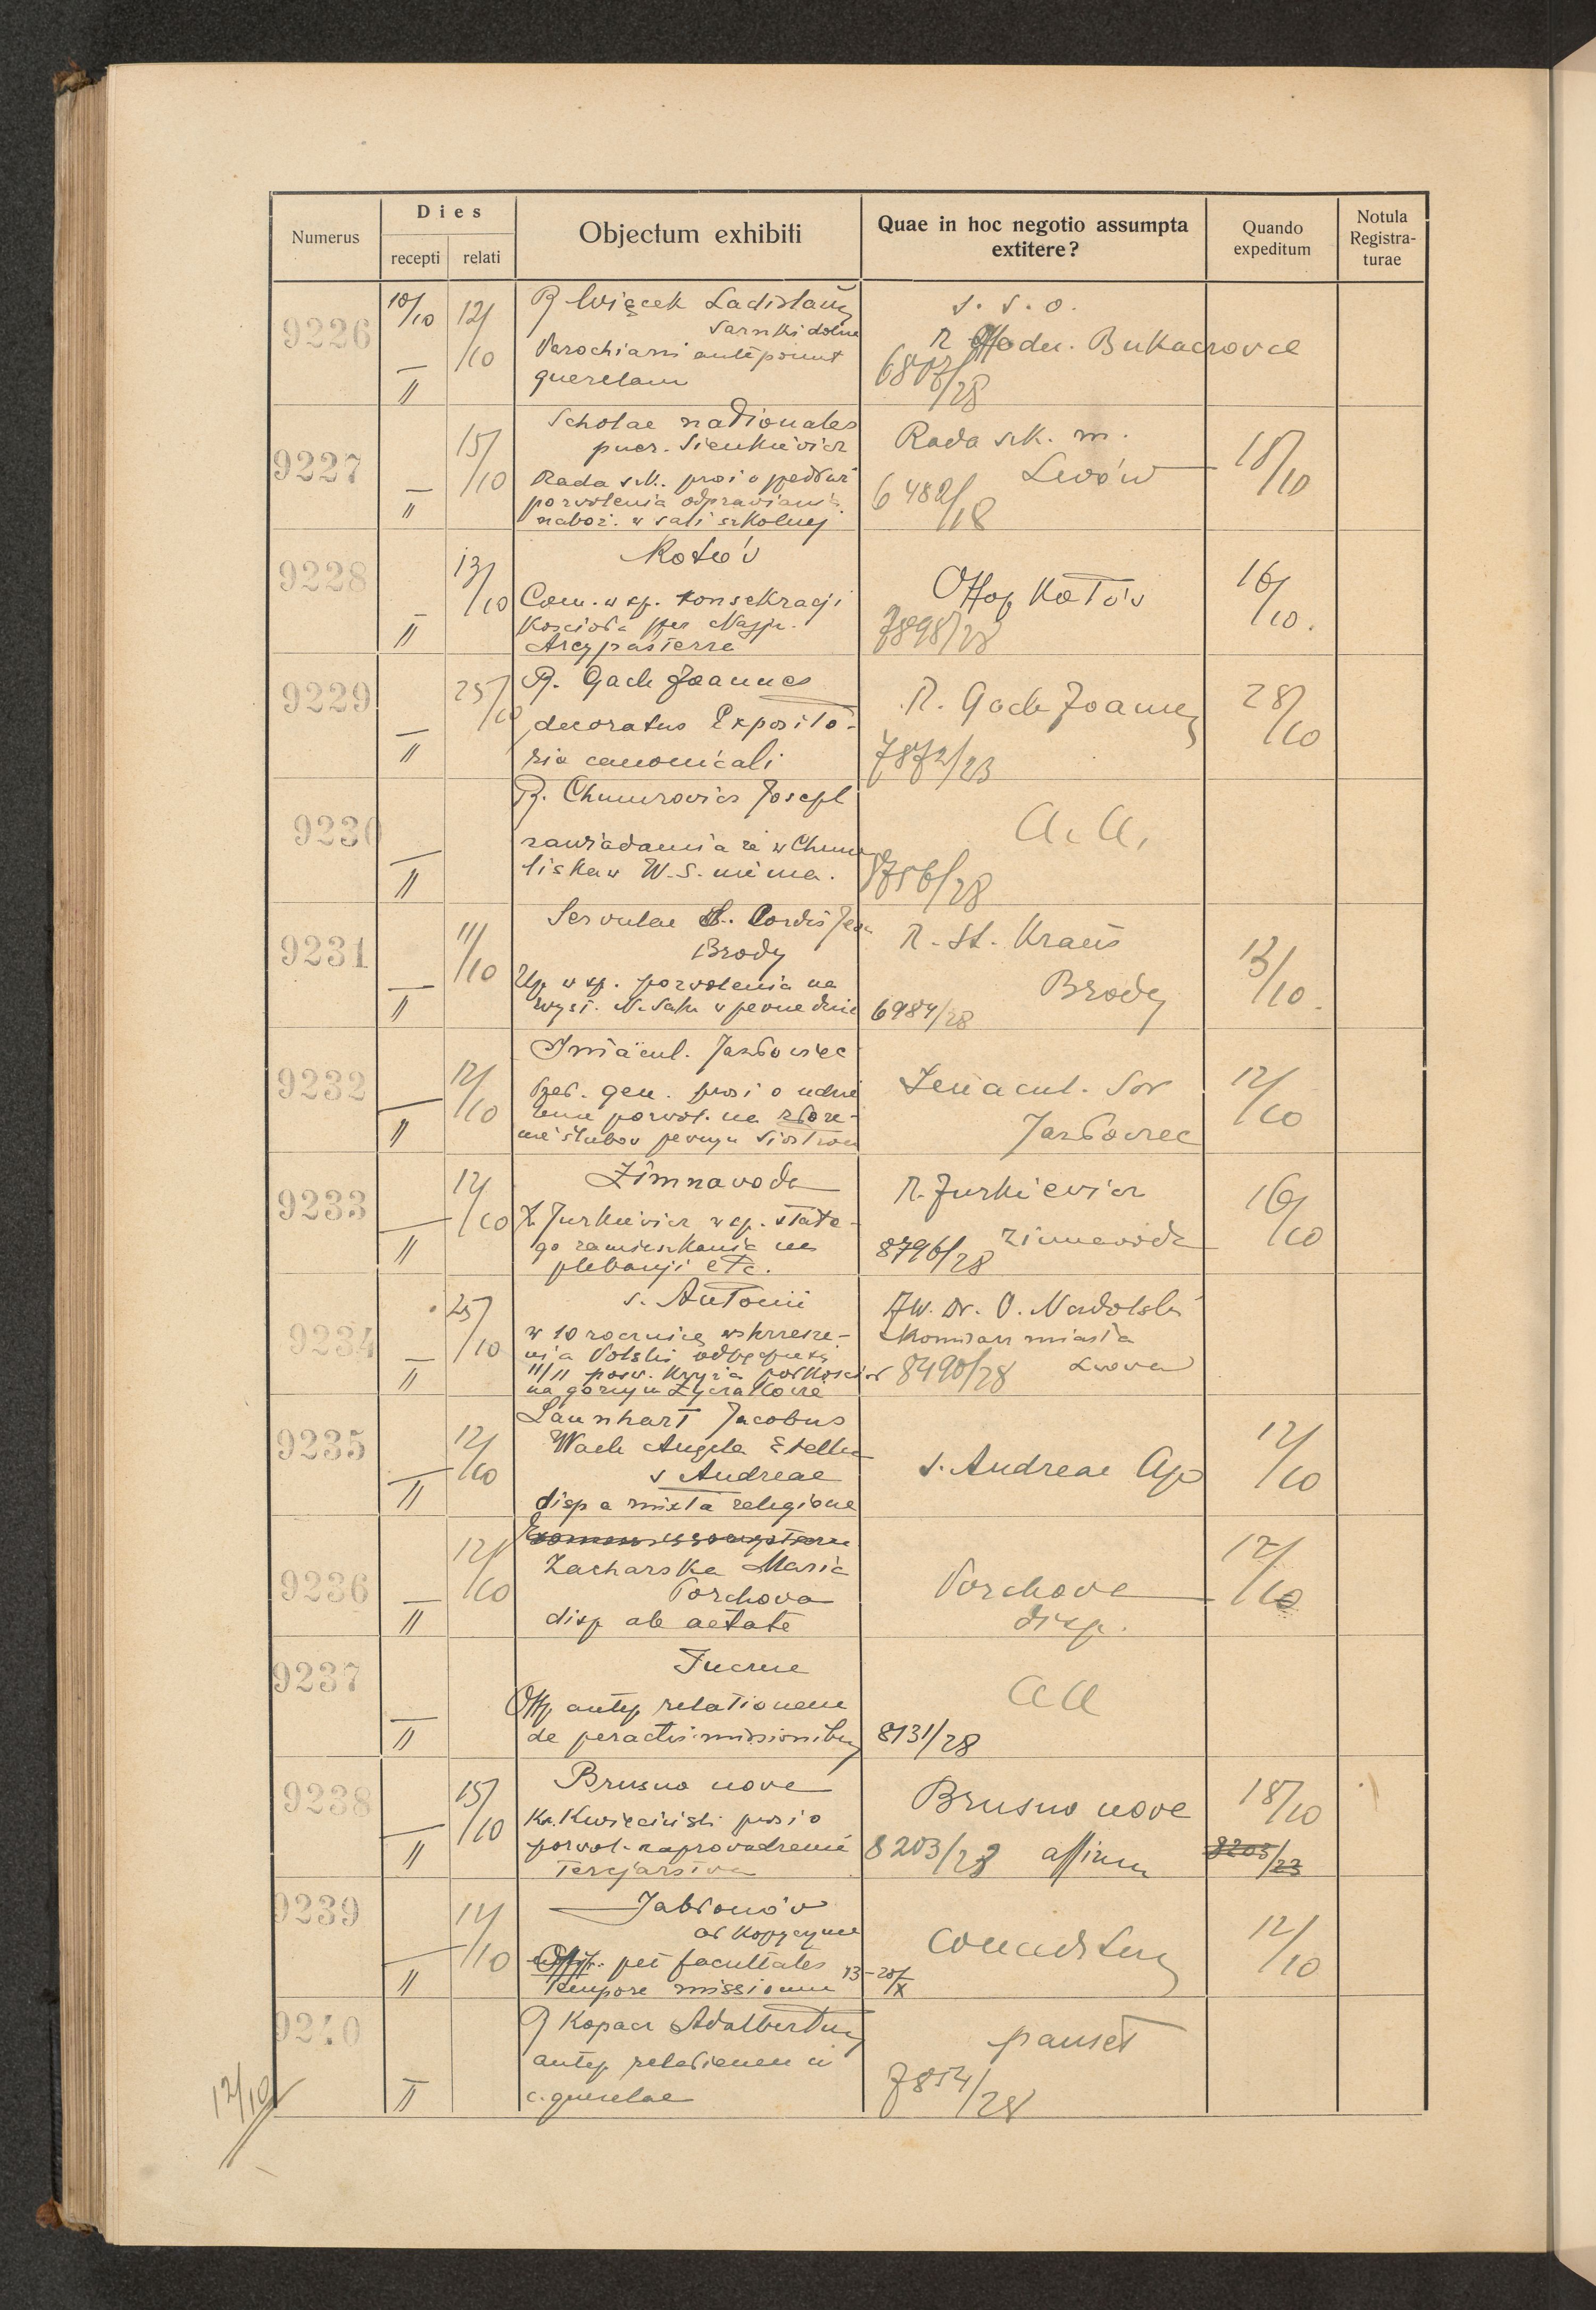 Numerus
Dies
recepti relati
Objectum exhibiti
Quae in hoc negotio assumpta extitere?
Quando expeditum
Notula Registra-turae
9226 10/10 12/10
R Więcek Ladislaus
Sarnki dolne
Parochiani anteponunt
querelam
s. s. o.
R Offo den. Bukaczowce
6807/28
9227 " 15/10
Scholae nationales
puer. Sienkiewicz
Rada szk. prosi o przedłuż
pozwolenia odprawiania
naboż. w sali szkolnej
Rada szk. m.
Lwów
6482/18
18/10
9228 " 13/10
Kotów
Com. w sp. konsekracji
Kościoła per Najp.
Arcypasterza
Offop Kotów
7898/28
16/10.
9229 " 25/10
R. Gach Joannes
decoratus Exposito-
rio canonicali
R. Gach Joannes
7872/23
28/10
9230 "
R. Chmurowicz Joseph
zawiadamia że w Chmie
liskach W. S. nie ma.
a. a.
8756/28
9231 " 11/10
Servulae S. Cordis Jesu
Brody
Up w sp. pozwolenia na
wyst. N. Sakr w pewne dnie
R. St. Kraus
Brody
6984/28
13/10.
9232 " 12/10
Immacul. Jazłowiec
Przeł. gen. prosi o udzie
lenie pozwol. na złoże-
nie ślubów pewnym Siostrom
Immacul. Sor
Jazłowiec
12/10
9233 " 12/10
Zimnawoda
X. Jurkiewicz w sp. stałe-
go zamieszkania na
plebanji etc.
R. Jurkiewicz
Zimnawoda
8796/28
16/10
9234 " 25/10
s. Antonii
w 10 rocznicę wskrzesze-
nia Polski odbędzie się
11/11 pośw. Krzyża pod kościół
na górnym Łyczakowie
JW. Dr. O. Nadolski
Komisarz miasta
8490/28 Lwowa
9235 " 12/10
Launhart Jacobus
Wach Angela Stella
s Andreae
disp a mixta religione
s. Andreae Ap
12/10
9236 " 12/10
Zacharska Maria
Porchova
disp ab aetate
Porchova
disp.
12/10
9237 "
Jucme
Offp antep relationem
de peractis missionibus
aa
8131/28
9238 " 15/10
Brusno nove
Kx. Kwieciński prosi o
pozwol. zaprowadzenia
Tercjarstwa
Brusno nove
8203/28 affirm
18/10
8203/23
9239 " 12/10
Jabłonów
ad Kopyczyńce
Offp. pet facultates
tempore missionum 13-20/X
conceduntur
12/10
9240 "
R Kopacz Adalbertus
antep relationem ci
c. querelae
panset
7854/28
12/10